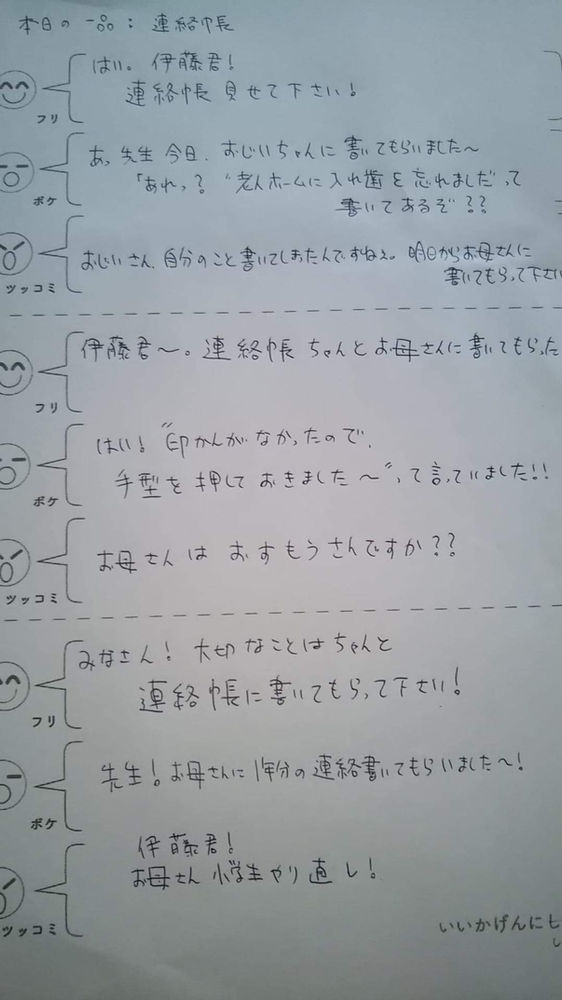 本日の一品：連絡帳
はい。伊藤君！
連絡帳見せて下さい！
フリ
あっ先生今日、おじいちゃんに書いてもらいました〜
「あれっ？“老人ホームに入れ歯を忘れました”って
書いてあるぞ？？
ボケ
おじいさん、自分のこと書いてしまたんですねぇ。明日からお母さんに
書いてもらって下さい
ツッコミ
伊藤君〜。連絡帳ちゃんとお母さんに書いてもらった
フリ
はい！“印かんがなかったので、
手型を押しておきました〜”って言っていました!!
ボケ
お母さんはおすもうさんですか??
ツッコミ
みなさん！大切なことはちゃんと
連絡帳に書いてもらって下さい！
フリ
先生！お母さんに1年分の連絡書いてもらいました〜！
ボケ
伊藤君！
お母さん小学生やり直し！
ツッコミ
いいかげんに